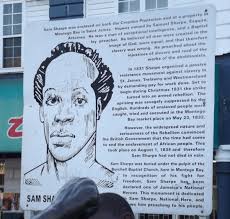 Sam Sharpe was enslaved on both the Croydon Plantation and at a property in
Montego Bay in Saint James. Named by Samuel Sharpe, Esquire,
Attorney. He was a man of exceptional intelligence, and a Baptist
lay preacher. He believed all men were created in the
image of God, were equal, and that therefore
slavery was wrong. He preached about the
injustices of slavery and evil of the
works of the slaveholders.
In 1831 Sharpe organized a passive
resistance movement against slavery in
St. James, Trelawny and Westmoreland
by demanding pay for work done. Set to
begin during Christmas 1831 the strike
turned into an armed rebellion. The
uprising was savagely suppressed by the
English. Hundreds of enslaved people were
caught, tried and executed in the Montego
Bay market place on May 23, 1832.
However, the widespread nature and
seriousness of the Rebellion convinced
the British Government that the time had come
to end the enslavement of African people. This
took place on August 1, 1834 and therefore
Sam Sharpe had not died in vain.
Sam Sharpe was buried under the pulpit of the
Burchell Baptist Church, here in Montego Bay
In recognition of his fight for
freedom, Sam Sharpe has been
declared one of Jamaica's National
Heroes. This monument is dedicated
to Sam Sharpe, National Hero, and
shows him preaching to his people.
SAM SHA